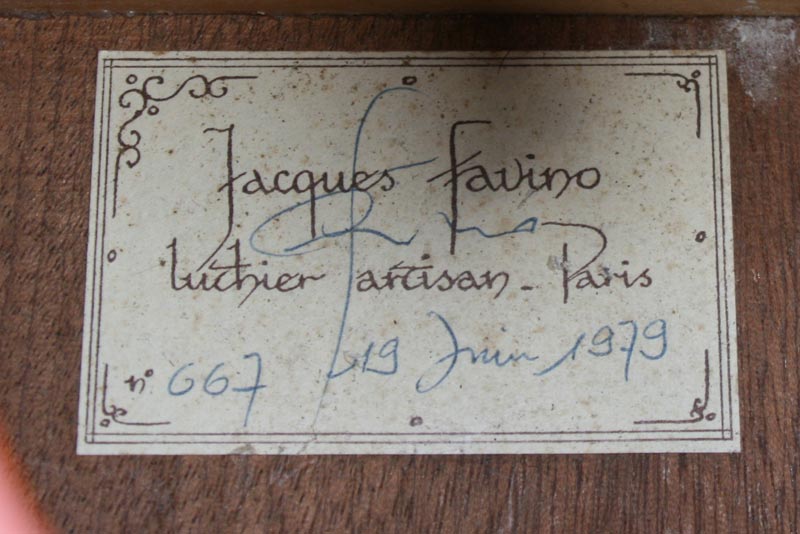 Jacques Favino
luthier artisan - Paris
n° 667 19 Juin 1979